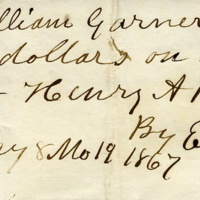 lliam Garner
dollars on
Henry A
By E
y 8 Mo 19 1867